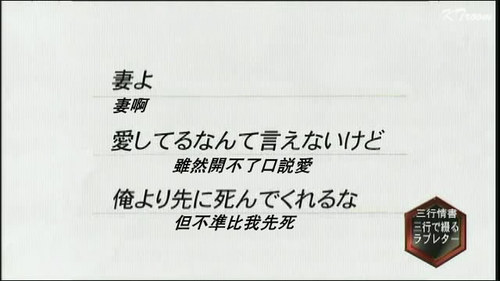 KTroom
妻よ
妻啊
愛してるなんて言えないけど
雖然開不了口説愛
俺より先に死んでくれるな
但不準比我先死
三行情書
三行で綴る
ラブレター